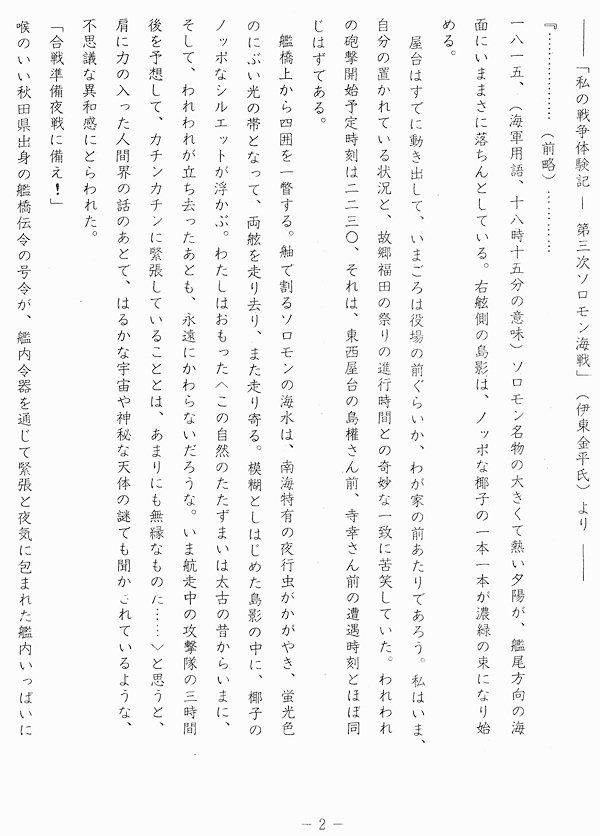 ――― 「私の戦争体験記 ― 第三次ソロモン海戦」 (伊東金平氏) より ―――
『……………… (前略) …………
一八一五、(海軍用語、十八時十五分の意味) ソロモン名物の大きくて熱い夕陽が、艦尾方向の海
面にいままさに落ちんとしている。右舷側の島影は、ノッポな椰子の一本一本が濃緑の束になり始
める。
屋台はすでに動き出して、いまごろは役場の前ぐらいか、わが家の前あたりであろう。私はいま、
自分の置かれている状況と、故郷福田の祭りの進行時間との奇妙な一致に苦笑していた。われわれ
の砲撃開始予定時刻は二二三〇、それは、東西屋台の島權さん前、寺幸さん前の遭遇時刻とほぼ同
じはずである。
艦橋上から四囲を一瞥する。舳で割るソロモンの海水は、南海特有の夜行虫がかがやき、蛍光色
のにぶい光の帯となって、両舷を走り去り、また走り寄る。模糊としはじめた島影の中に、椰子の
ノッポなシルエットが浮かぶ。わたしはおもった〈この自然のたたずまいは太古の昔からいまに、
そして、われわれが立ち去ったあとも、永遠にかわらないだろうな。いま航走中の攻撃隊の三時間
後を予想して、カチンカチンに緊張していることとは、あまりにも無縁なものだ……〉と思うと、
肩に力の入った人間界の話のあとで、はるかな宇宙や神秘な天体の謎でも聞かされているような、
不思議な異和感にとらわれた。
「合戦準備夜戦に備え！」
喉のいい秋田県出身の艦橋伝令の号令が、艦内令器を通じて緊張と夜気に包まれた艦内いっぱいに
― 2 ―